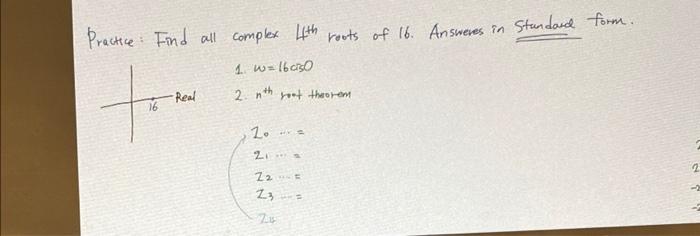 Practice: Find all complex 4th roots of 16. Answeres in Standard form.
1. w=16cis0
16 Real
2. nth root theorem
Z0 ... =
Z1 ... =
Z2 ... =
Z3 ... =
Z4
2
-2